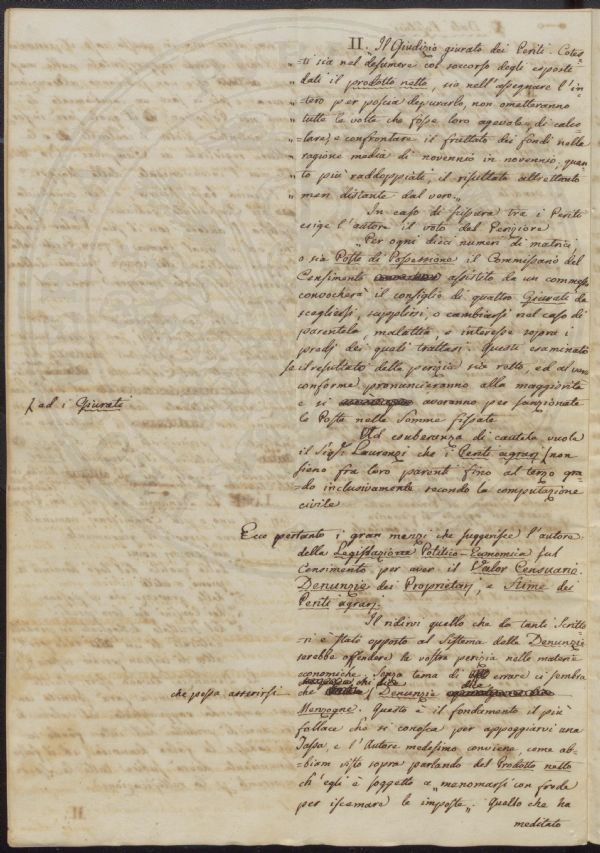 II. "Il Giudizio giurato dei Periti Cotes-
"=ti sia nel desumere col soccorso degli esposti
"dati il prodotto netto, sia nell'assegnare l'in-
"tero per poscia depurarlo, non ometteranno
"tutte le volte che fosse loro agevole, di calco-
"=lare, e confrontare il fruttato dei fondi nella
"ragione media di novennio in novennio, quan-
"to più raddoppiati, il risultato altrettanto
"men distante dal vero„
In caso di scissura tra i Periti
esige l'autore il voto del Perziore
"Per ogni dieci numeri di matrici
o sia Poste di Possessione il Commissario del
Censimento assistito da un commesso
convocherà il consiglio di quattro Giurati da
scegliersi, supplirsi, o cambiarsi nel caso di
parentela, malattia, o interesse sopra i
predj dei quali trattasi. Questi esaminato
se il resultato della perizia sia retto, ed al vero
conforme pronuncieranno alla maggiorità
e si avranno per sanzionate
le Poste nelle Somme fissate
Ad esuberanza di cautela vuole
il Sigr. Laurenzi che i Periti agrarj (non
ed i Giurati
sieno fra loro parenti fino al terzo gra-
=do inclusivamente secondo la computazione
civile
Ecco pertanto i gran mezzi che suggerisce l'autore
della Legislazione Politico-Eunomica sul
Censimento per aver il Valor Censuario.
Denunzie dei Proprietarj, e Stime dei
Periti agrarj.
Il ridirvi quello che da tanti Scritto-
=ri è stato opposto al sistema delle Denunzie
sarebbe offendere la vostra perizia nelle materie
economiche. Senza tema di errare ci sembra
che possa asserirsi
che Denunzie
Menzogne. Questo è il fondamento il più
fallace che si conosca per appoggiarvi una
Tassa, e l'Autore medesimo conviene, come ab-
=biam visto sopra parlando del Prodotto netto
ch'egli è soggetto a "menomarsi con frode
per iscemare le imposte„. Quello che ha
meditato